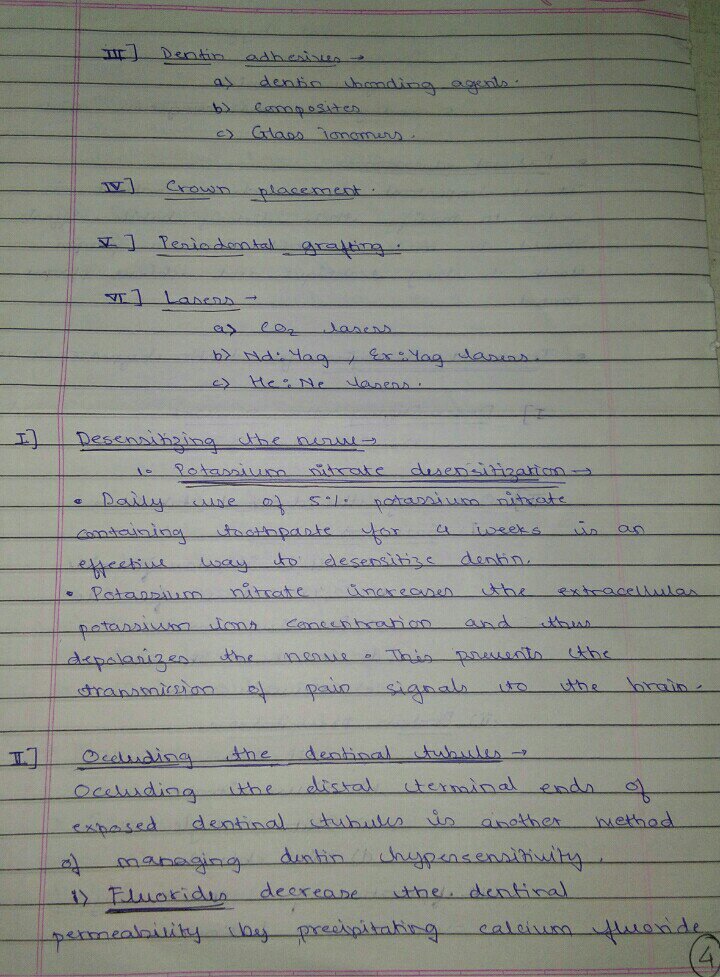 III] Dentin adhesives →
a) dentin bonding agents.
b) Composites
c) Glass ionomers.
IV] Crown placement.
V] Periodontal grafting.
VI] Lasers →
a) CO2 lasers
b) Nd:Yag, Er:Yag lasers.
c) He:Ne lasers.
I] Desensitizing the nerve →
1. Potassium nitrate desensitization →
• Daily use of 5% potassium nitrate
containing toothpaste for 4 weeks is an
effective way to desensitize dentin.
• Potassium nitrate increases the extracellular
potassium ions concentration and thus
depolarizes the nerve. This prevents the
transmission of pain signals to the brain.
II] Occluding the dentinal tubules →
Occluding the distal terminal ends of
exposed dentinal tubules is another method
of managing dentin hypersensitivity.
1) Fluorides decrease the dentinal
permeability by precipitating calcium fluoride
4